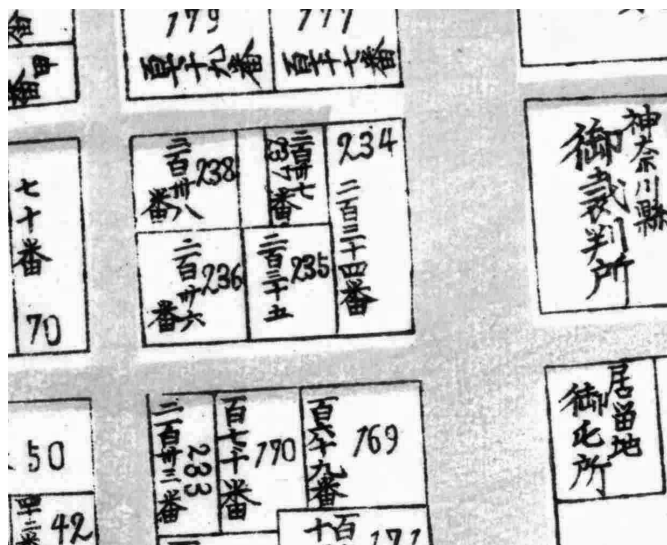 179
百七十九番
177
百七十七番
番
神奈川縣
御裁判所
七十番
70
二百卅八番
238
二百卅七番
237
234
二百三十四番
二百卅六番
236
二百三十五
235
居留地
御屯所
50
42
二百卅三番
233
百七十番
170
百六十九番
169
171